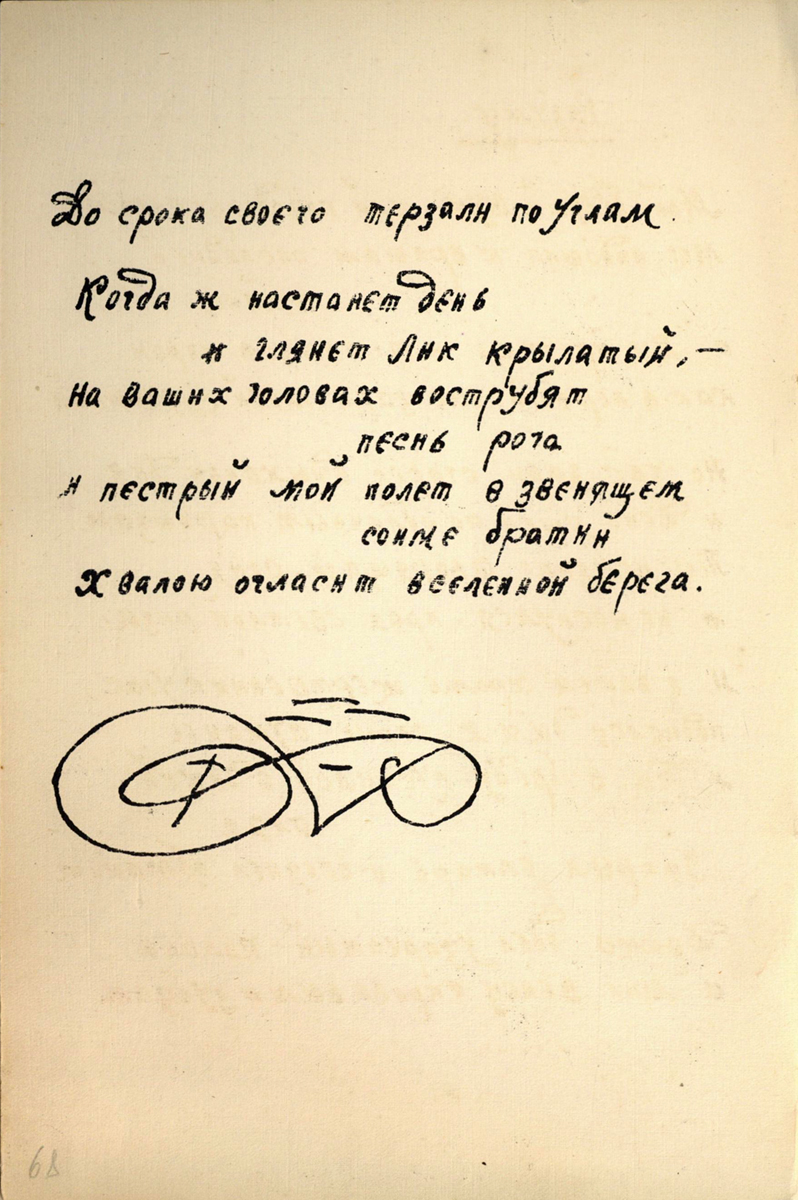 До срока своего терзали по углам.
Когда ж настанет день
и глянет Лик крылатый, —
На ваших головах вострубят
песнь рога
и пестрый мой полет в звенящем
сонме братии
Хвалою огласит вселенной берега.
68